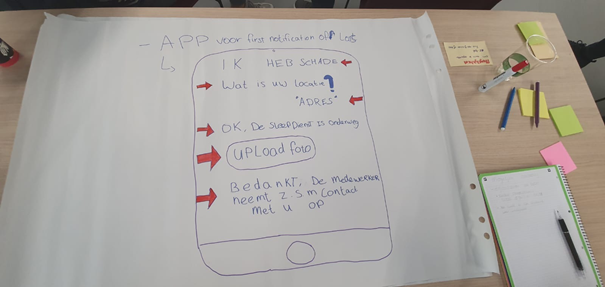 - APP voor first notification off Loss
IK HEB SCHADE
Wat is uw Locatie?
"ADRES"
OK, De Sleepdienst is onderweg
UPLoad foto
Bedankt, De medewerker
neemt z.s.m contact
Met u op